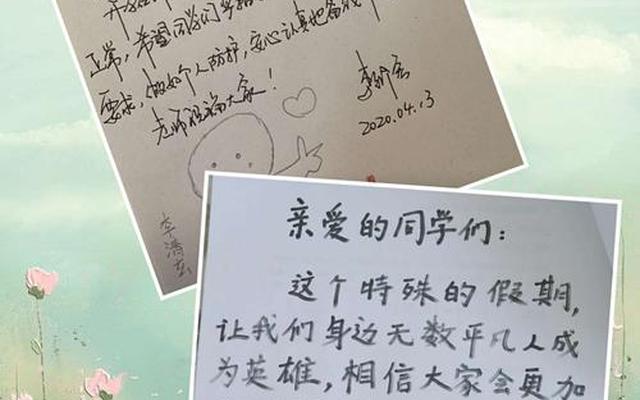 正常,希望同学们
要求,做好个人防护,安心认真地备战
老师祝福大家!
2020.04.13
李清玄
亲爱的同学们:
这个特殊的假期,
让我们身边无数平凡人成
为英雄,相信大家会更加